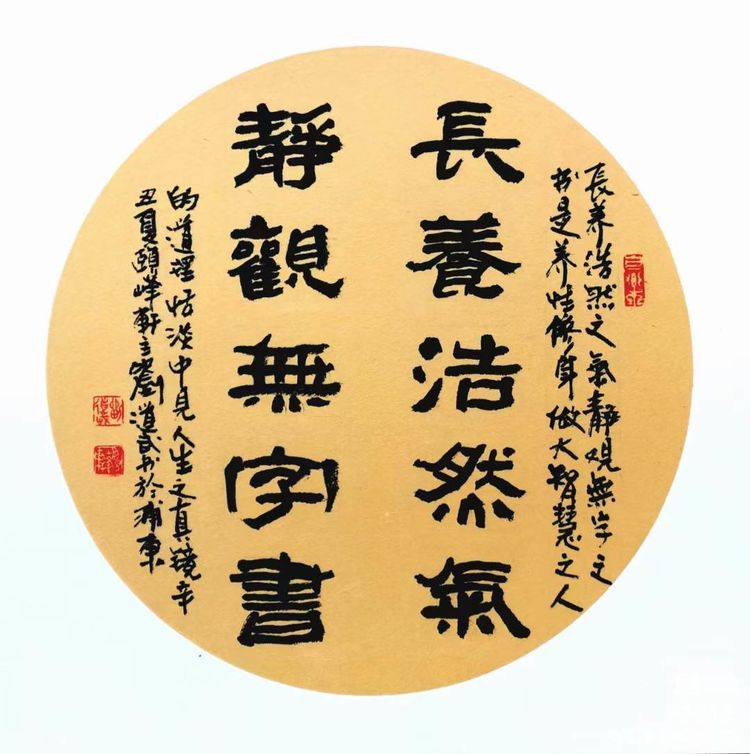 長養浩然氣
靜觀無字書
長养浩然之氣静观無字之
书是养性修身做大智慧之人
的道理恬淡中見人生之真鏡辛
丑夏頤峰軒主劉道武书於浦東